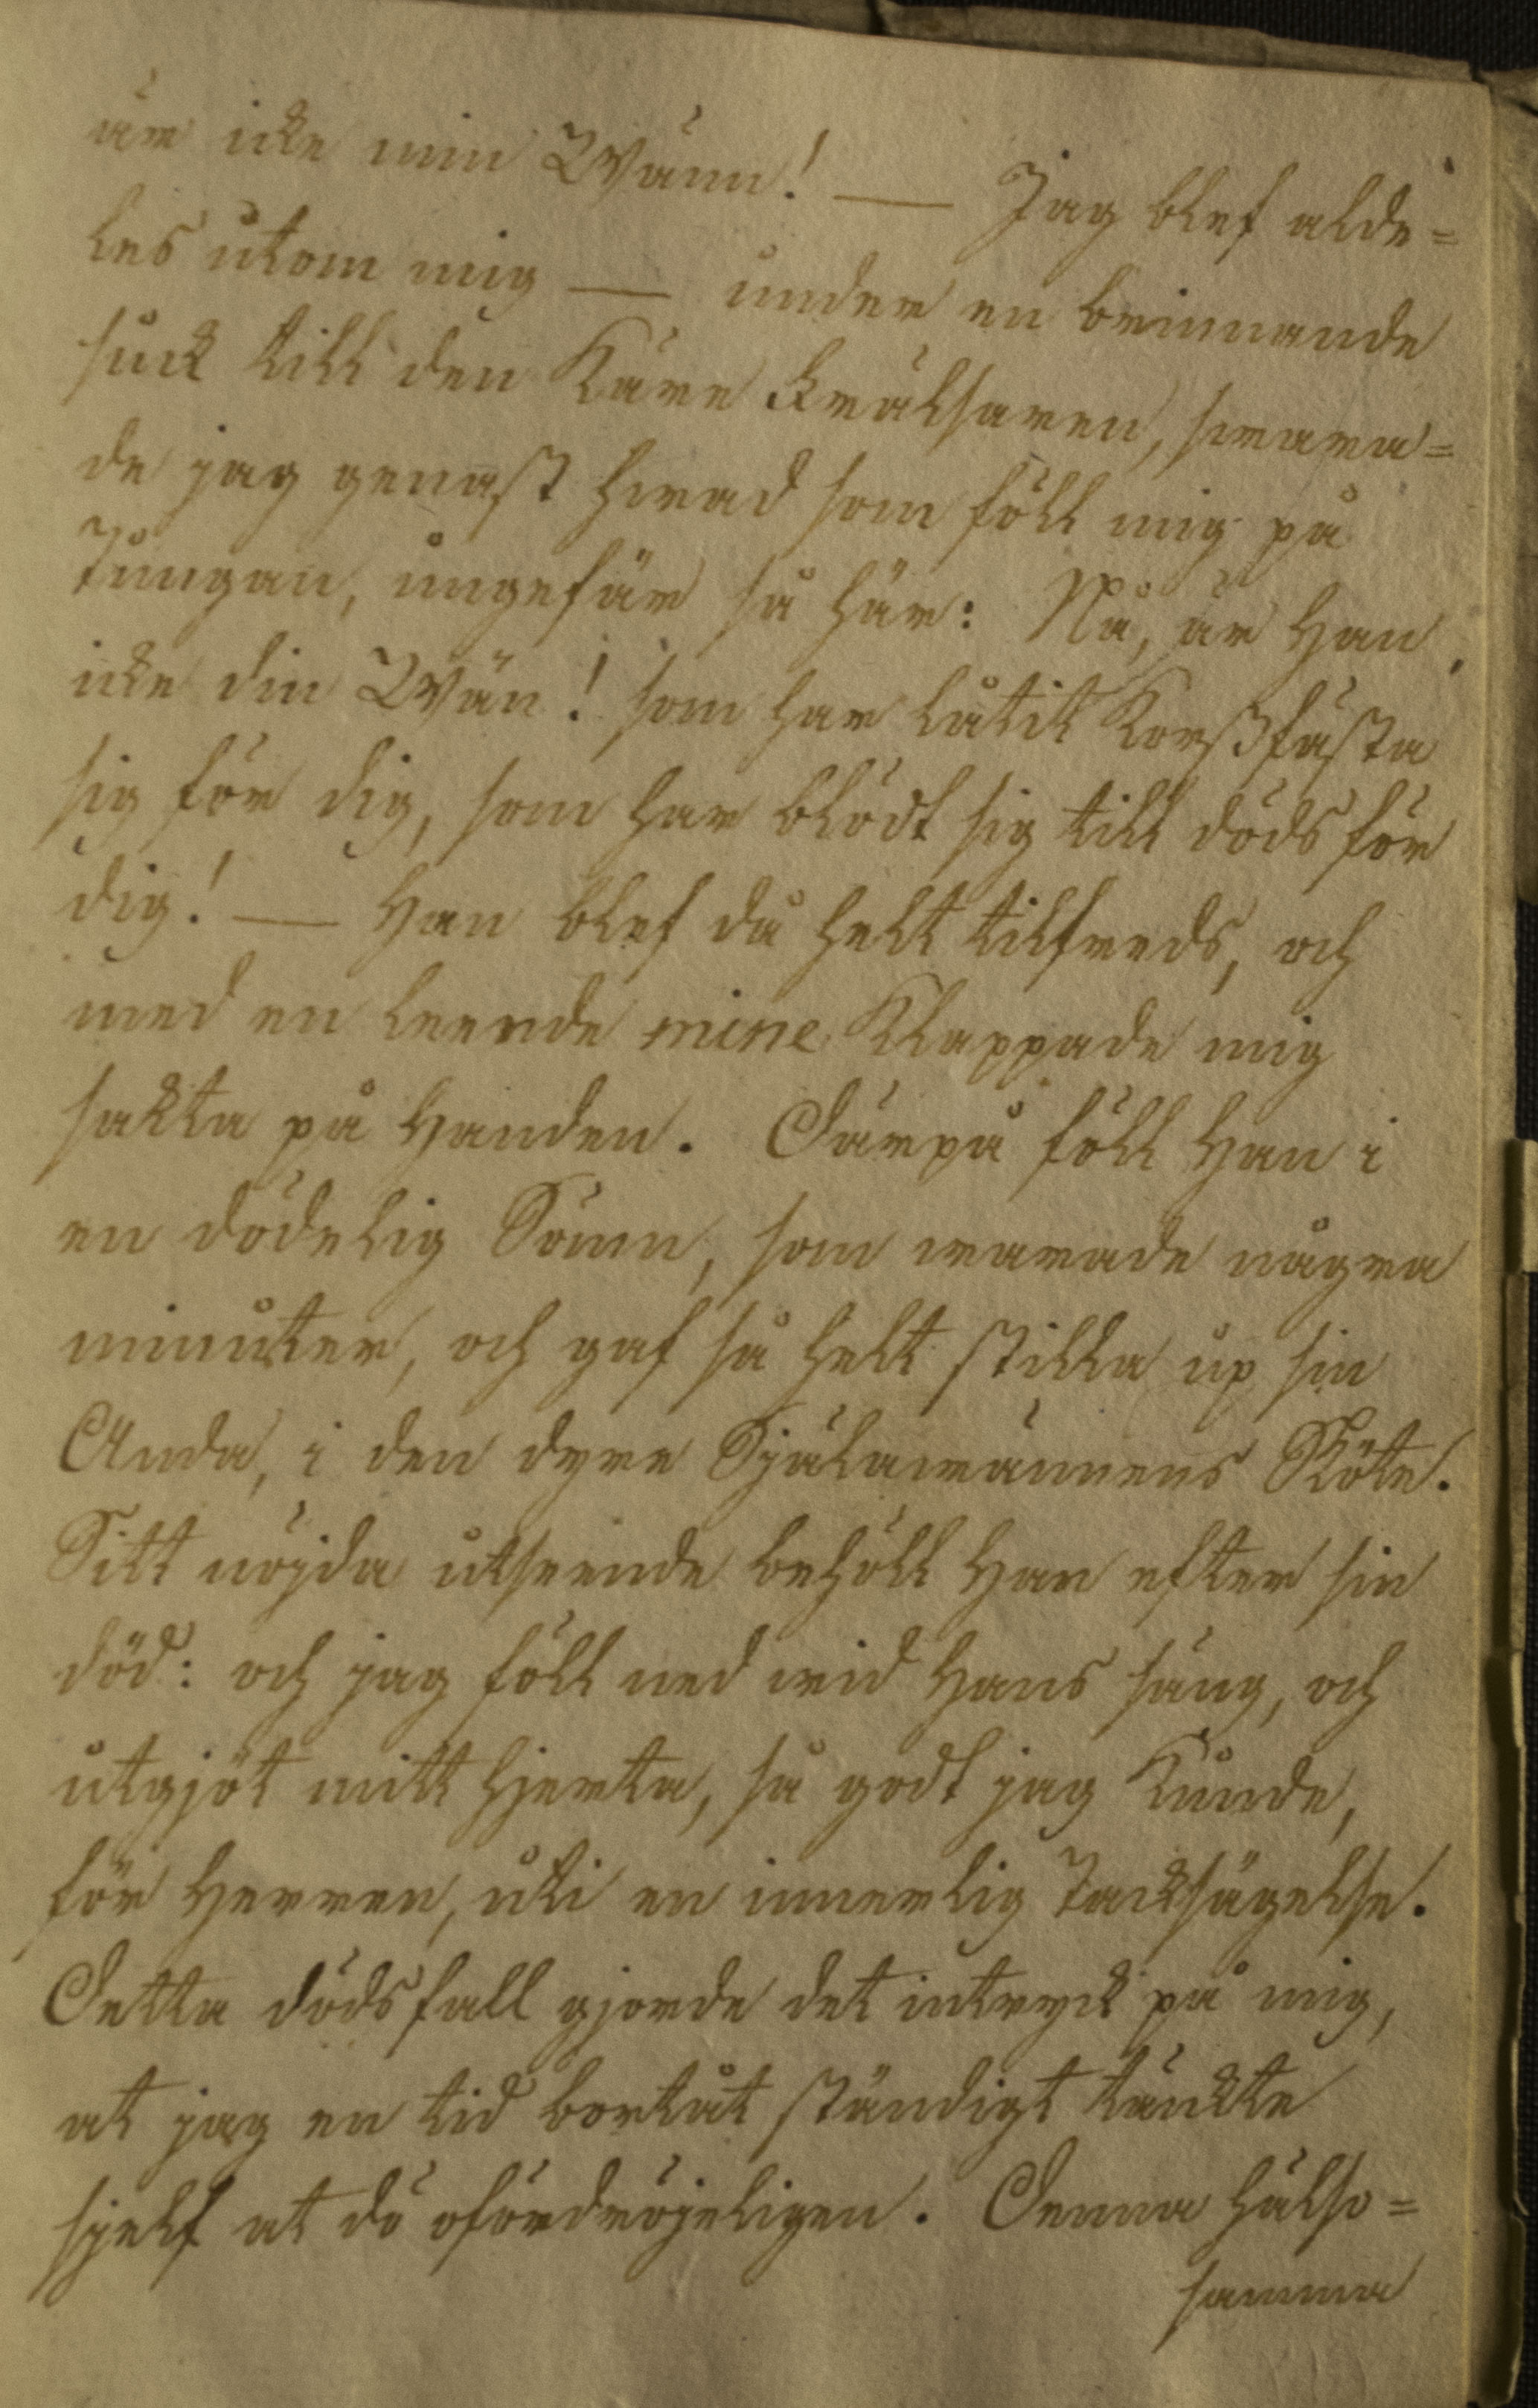 är icke min Wänn! — Jag blef alde=
les utom mig — under en brinnande
suck till den Käre Frälsaren, swara=
de jag genast hwad som föll mig på
Tungan, ungefär så här: Nå, är Han
icke din Wän! som har låtit Korssfästa
sig för dig, som har blödt sig till döds för
dig! — Han blef då helt tilfreds, och
med en leende mine Klappade mig
sakta på Handen. Därpå föll Han i
en dödelig Sömn, som warade några
minuter, och gaf så helt stilla up sin
Anda, i den dyre Själawännens Sköte.
Sitt nöjda utseende behöll Han efter sin
död: och jag föll ned wid Hans säng, och
utgjöt mitt hjerta, så godt jag Kunde,
för Herren, uti en innerlig Tacksägelse.
Detta dödsfall gjorde det intryck på mig,
at jag en tid bortåt ständigt tänckte
sjelf at dö ofördröjeligen. Denna hälso=
samma